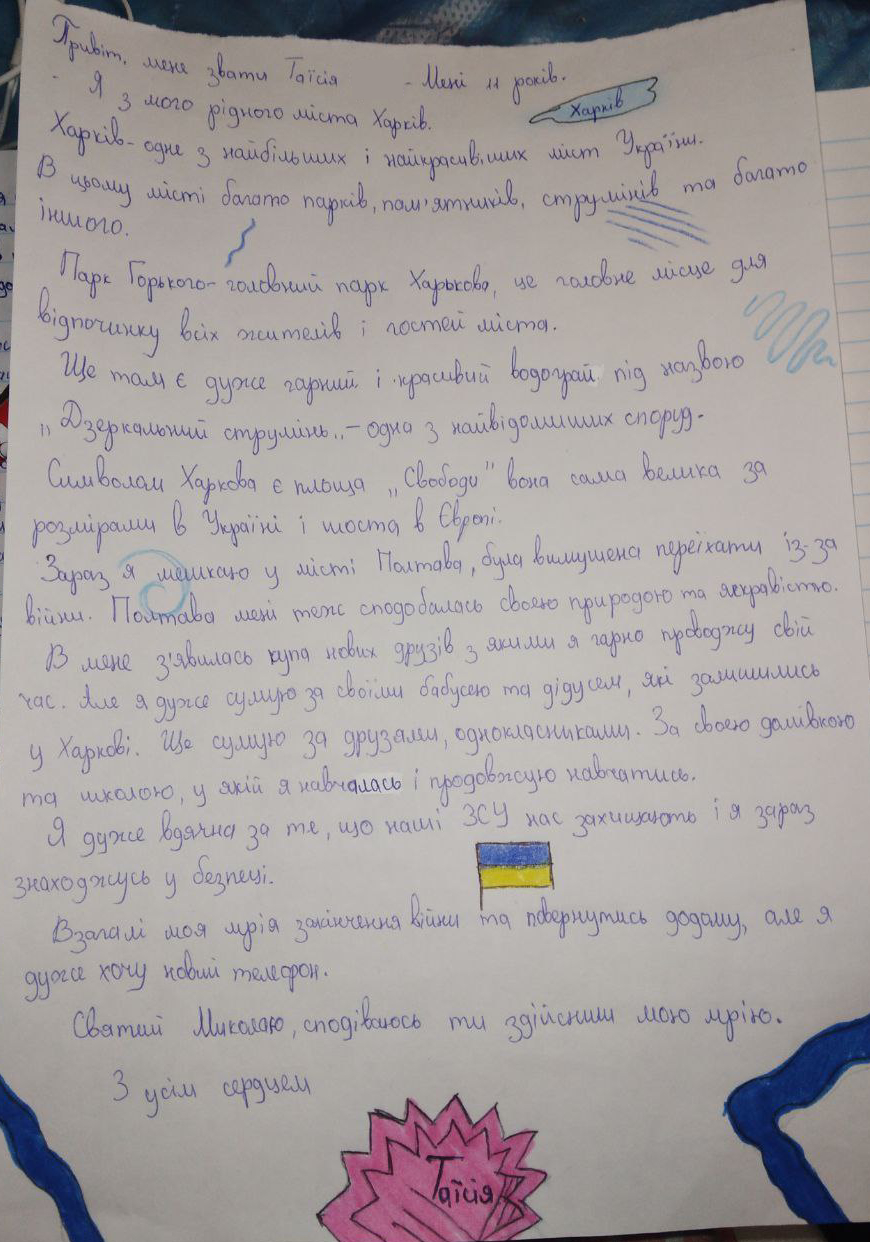 Привіт, мене звати Таїсія - Мені 11 років.
- Я з мого рідного міста Харків.
Харків
Харків - одне з найбільших і найкрасивіших міст України.
В цьому місті багато парків, пам'ятників, струмінів та багато
іншого.
Парк Горького - головний парк Харькова, це головне місце для
відпочинку всіх жителів і гостей міста.
Ще там є дуже гарний і красивий водограй під назвою
„Дзеркальний струмінь„ - одна з найвідоміших споруд.
Символом Харкова є площа „Свободи" вона сама велика за
розмірами в Україні і шоста в Європі.
Зараз я мешкаю у місті Полтава, була вимушена переїхати із-за
війни. Полтава мені теж сподобалась своєю природою та яскравістю.
В мене з'явилась купа нових друзів з якими я гарно проводжу свій
час. Але я дуже сумую за своїми бабусею та дідусем, які залишились
у Харкові. Ще сумую за друзями, однокласниками. За своєю домівкою
та школою, у якій я навчалась і продовжую навчатись.
Я дуже вдячна за те, що наші ЗСУ нас захищають і я зараз
знаходжусь у безпеці.
Взагалі моя мрія закінчення війни та повернутись додому, але я
дуже хочу новий телефон.
Святий Миколаю, сподіваюсь ти здійсниш мою мрію.
З усім сердцем
Таїсія